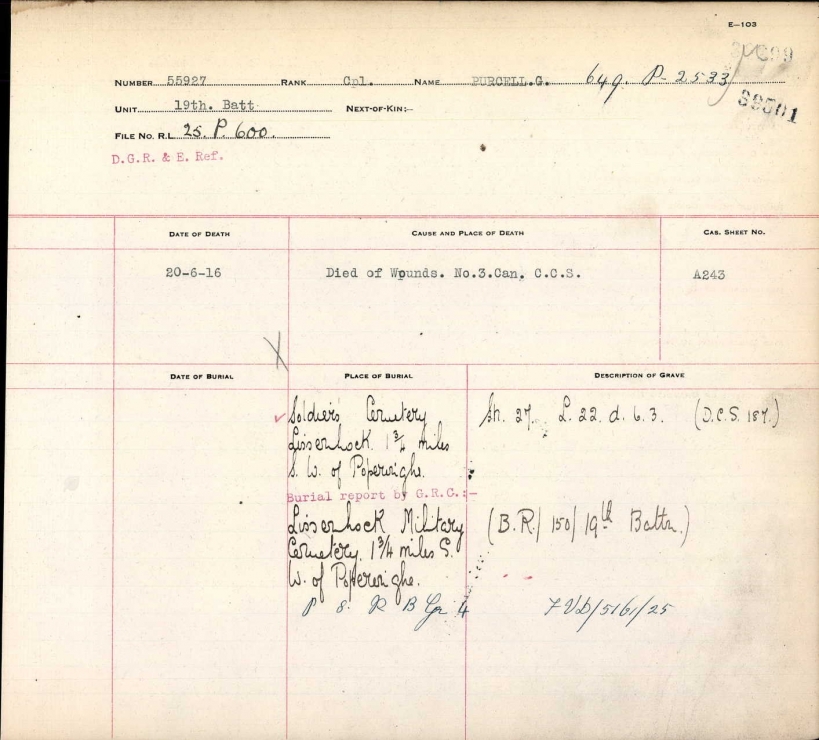 E-103
NUMBER 55927 RANK Cpl. NAME PURCELL.G. 649. P-2533
39501
UNIT 19th. Batt NEXT-OF-KIN:-
FILE NO. R.L. 25. P. 600.
D.G.R. & E. Ref.
DATE OF DEATH CAUSE AND PLACE OF DEATH CAS. SHEET NO.
20-6-16 Died of Wounds. No.3.Can. C.C.S. A243
DATE OF BURIAL PLACE OF BURIAL DESCRIPTION OF GRAVE
Soldiers Cemetery Sh. 27. L. 22. d. 6. 3. (D.C.S. 187.)
Lissenhock. 1 3/4 miles
S. W. of Poperinghe.
Burial report by G.R.C.:-
Lissenhock Military (B.R/ 150/ 19th Battn.)
Cemetery. 1 3/4 miles S.
W. of Poperinghe.
P 8. R B Gr 4 FVD/5161/25